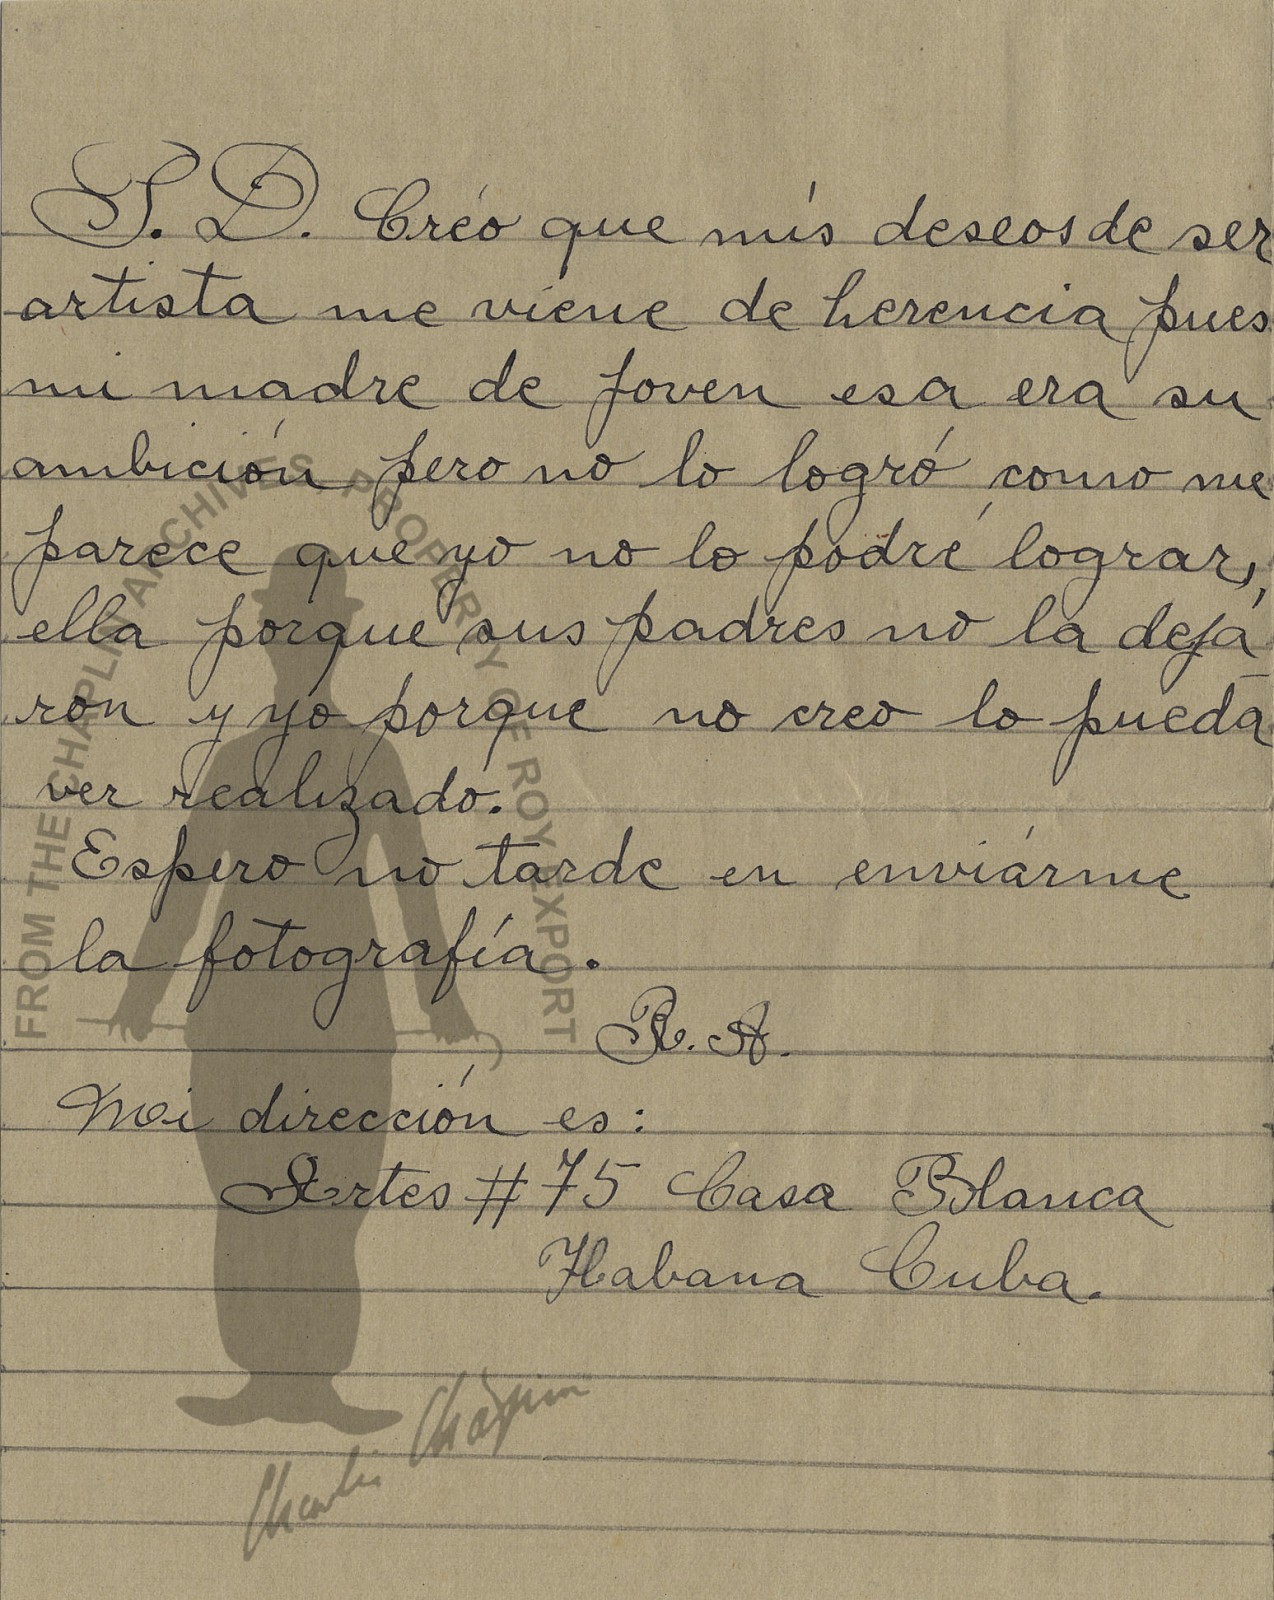 S. D. Créo que mís deseos de ser
artista me viene de herencia pues
mi madre de joven esa era su
ambición pero no lo logró como me
parece que yo no lo podré lograr,
ella porque sus padres no la dejá
ron y yo porque no creo lo pueda
ver realizado.
Espero no tarde en enviárme
la fotografía.
R. A.
Mi dirección es:
Artes # 75 Casa Blanca
Habana Cuba.
FROM THE CHAPLIN ARCHIVES PROPERTY OF ROY EXPORT
Charlie Chaplin